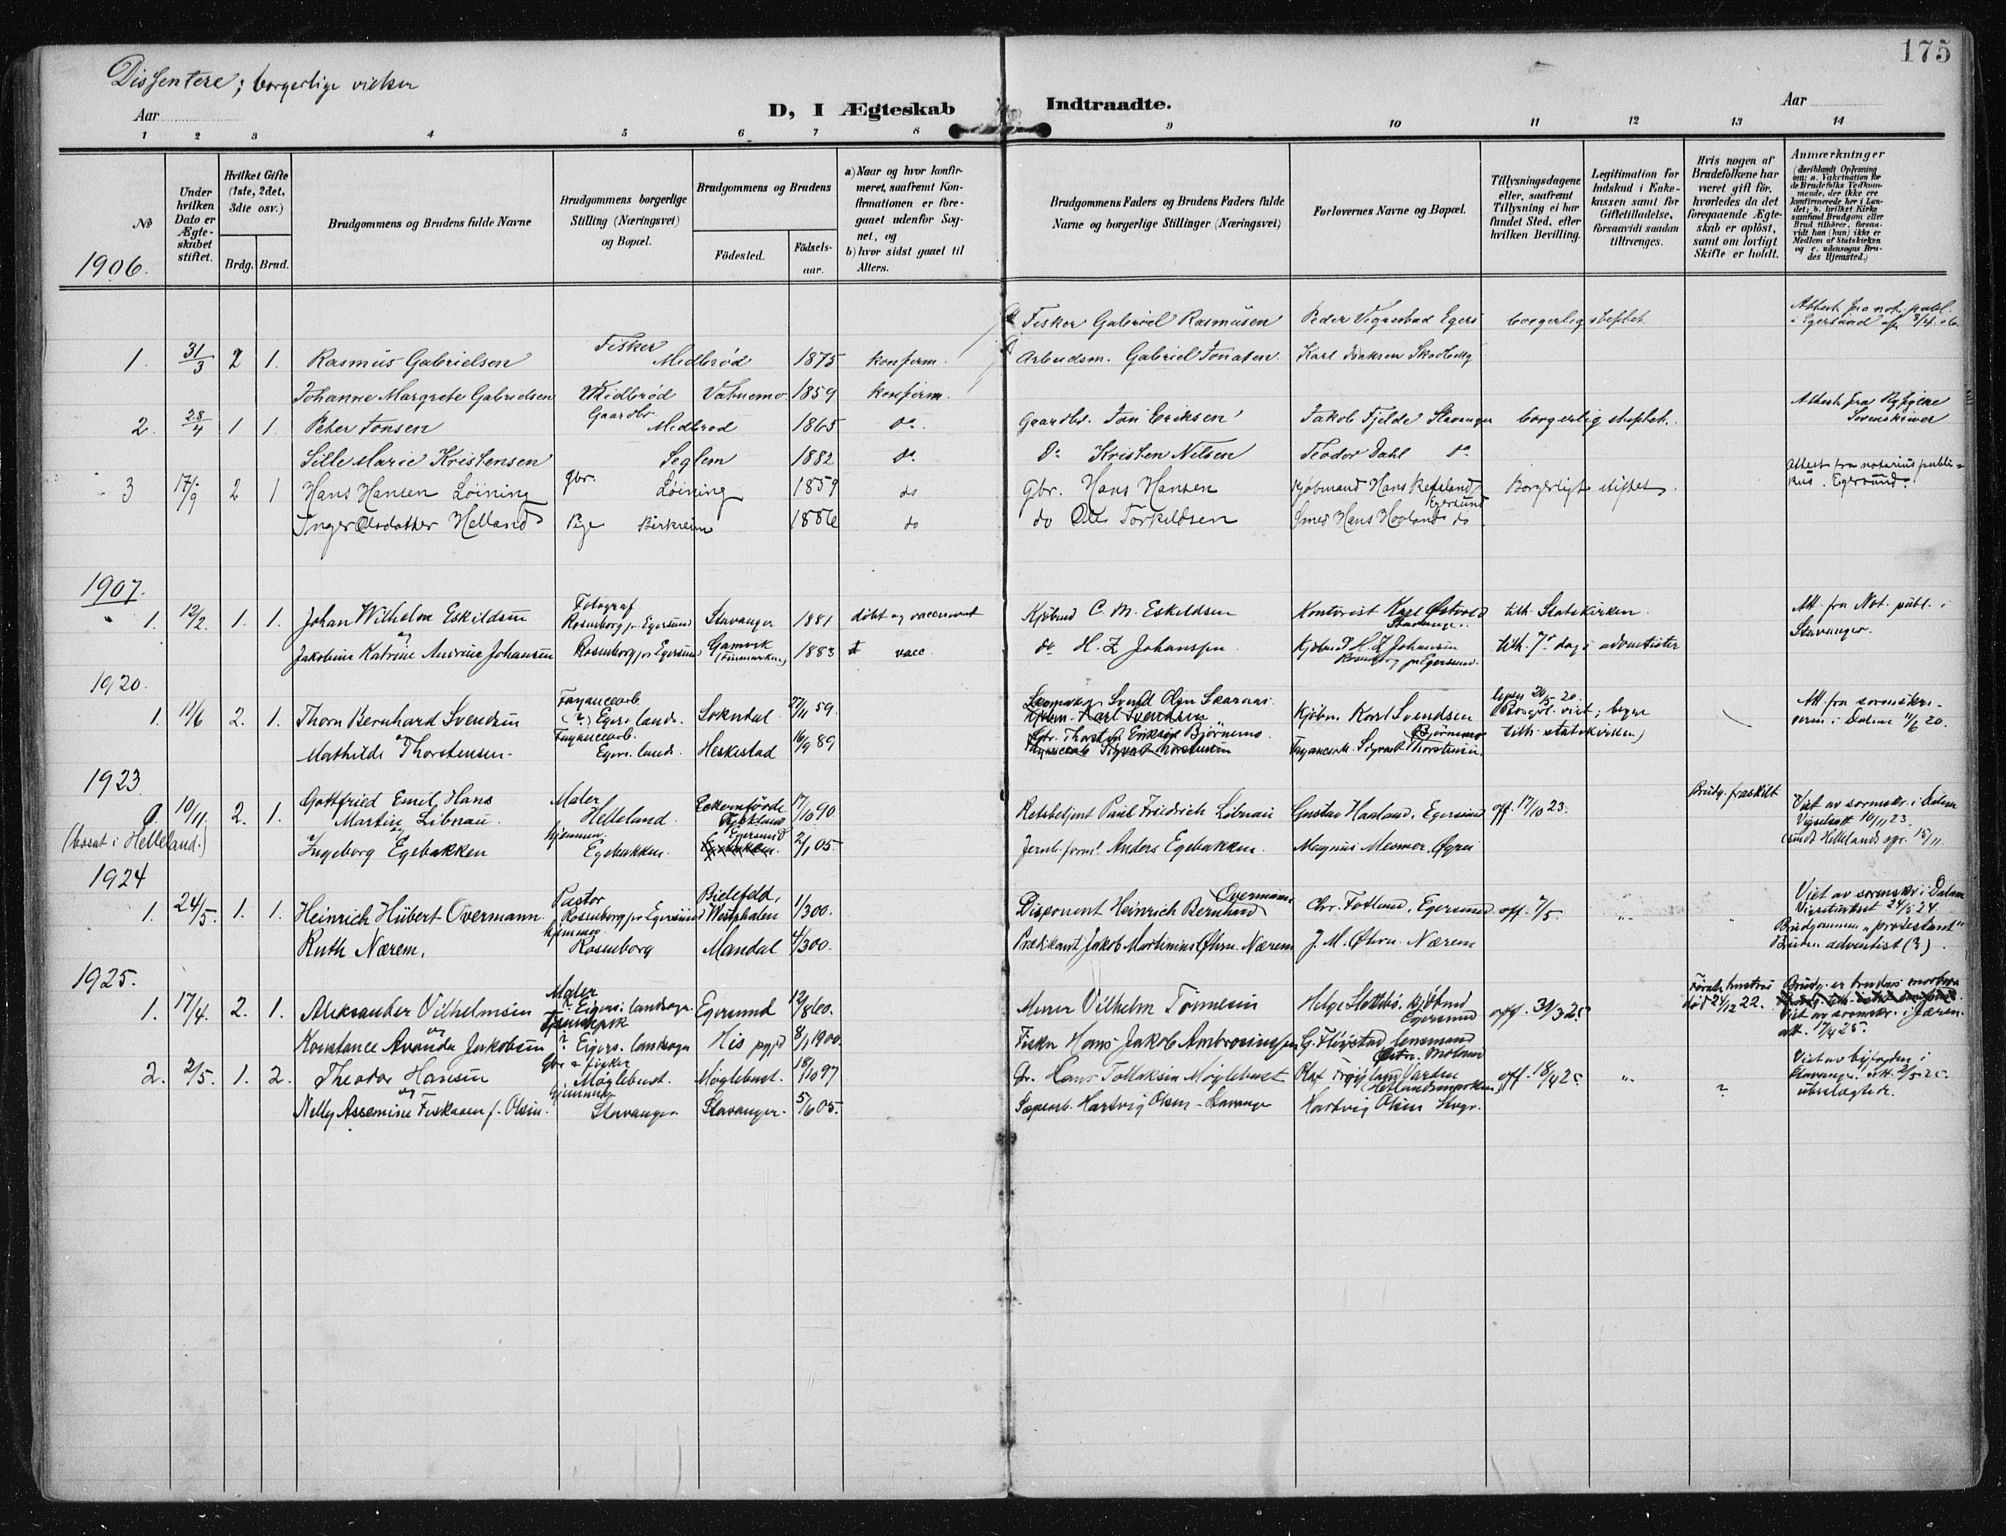 175
Dissentere; borgerlige vielser
Aar
D, I Ægteskab Indtraadte.
Aar
1 2 3 4 5 6 7 8 9 10 11 12 13 14
No
Under hvilken Dato er Ægteskabet stiftet.
Hvilket Gifte (1ste, 2det, 3die osv.)
Brdg. Brud.
Brudgommens og Brudens fulde Navne
Brudgommens borgerlige Stilling (Næringsvei) og Bopæl.
Brudgommens og Brudens
Födested. Födselsaar.
a) Naar og hvor konfirmeret, saafremt Konfirmationen er foregaaet udenfor Sognet, og
b) hvor sidst gaaet til Alters.
Brudgommens Faders og Brudens Faders fulde Navne og borgerlige Stillinger (Næringsvei)
Forlovernes Navne og Bopæl.
Tillysningsdagene eller, saafremt Tillysning ei har fundet Sted, efter hvilken Bevilling.
Legitimation for Indskud i Enkekassen samt for Giftetilladelse, forsaavidt saadan tiltrænges.
Hvis nogen af Brudefolkene har været gift för, hvorledes da det foregaaende Ægteskab er oplöst, samt om lovligt Skifte er holdt.
Anmærkninger
(deriblandt Oplysning om: a. Vakcination for de Brudefolks Vedkommende, der ikke ere konfirmerede her i Landet; b. hvilket Kirkesamfund Brudgom eller Brud tilhörer, forsaavidt han (hun) ikke er Medlem af Statskirken og c. udensogns Brudes Hjemsted.)
1906.
1. 31/3 2 1. Rasmus Gabrielsen Fisker Midbrød 1875 konfirm. Fisker Gabriel Rasmusen Peder Vigrestad Egers borgerlig stiftet. Attest fra not. publ. i Egersund
Johanne Margrete Gabrielsen Midbrød Vatnemo 1859 konfirm. Arbeidsm. Gabriel Jonasen
2. 28/4 1 1. Peter Jonsen Gaardbr. Midbrød 1865 do Gaardbr. Jon Eriksen Jakob Fjelde Stavanger borgerlig stiftet. Attest fra Ryfylke Sorenskriver
Sille Marie Kristensen Seglem 1882 do do Kristen Nilsen Teodor Dahl do
3 17/9 2 1 Hans Hansen Løining gbr. Løining 1859 do Gbr. Hans Hansen Kjøbmand Hans Refsland Egersund Borgerligt stiftet. Attest fra notarius publicus. Egersund.
Inger Olsdatter Helland Pige Birkreim 1886 do do Ole Torkildsen Smed Hans Hovland do
1907.
1. 12/2 1. 1. Johan Wilhelm Eskildsen Fotograf Rosenborg pr Egersund Stavanger 1881 døbt og vaccineret Kjøbmd C. M. Eskildsen Kontorist Karl Østvold Stavanger. tilh. Statskirken Att. fra Not. publ. i Stavanger.
og
Jakobine Katrine Andrine Johansen Rosenborg pr Egersund Gamvik (Finmarken) 1883 vacc do H. Z. Johansen Kjøbmd H. Z. Johansen Rosenborg pr Egersund. tilh. 7de dags adventister
1920.
1. 11/6 2. 1. Thorn Bernhard Svendsen Fayancearb. (?) Egers. lands. Sokndal 27/11 59 Kjøbm. Karl Svendsen Kjøbm. Karl Svendsen Borgerl. viet; begge tilh. statskirken) Att. fra sorenskriveren i Dalene 11/6 20.
Mathilde Thorstensen. Fayancearb. Egers. lands. Heskestad 16/9 89 Gbr. Thorsten Eriksen Bjørnemo Fayancearb. Sigvart Thorstensen.
1923.
1. 10/11. 2. 1. Gottfried Emil Hans Martin Libnau. Maler Helleland. Eckernförde Tyskland 17/10 90 Retsbetjent Paul Fridrich Libnau Gustav Haaland, Egersund off. 17/10 23. Brudg. fraskilt Viet av sorenskr. i Dalene
(bosat i Helleland.) og
Ingeborg Egebakken hjemmev. Egebakken. Egersund 2/1 05 Jernb.form. Anders Egebakken. Magnus Mesmor. Øgrei
1924
1. 24/5. 1. 1. Heinrich Hubert Overmann Pastor Rosenborg pr Egersund Bielefeld, Westphalen 1/3 00. Disponent Heinrich Bernhard Overmann Chr. Fotland, Egersund off. 7/5 „ „ Viet av sorenskr. i Dalene Vigselsattest 24/5 24
Ruth Nærem, hjemmev. Rosenborg Mandal 4/3 00. Prædikant Jakob Martinius Øhrn Nærem J. M. Øhrn Nærem Brudgommen „protestant" Bruden adventist (?).
1925.
1. 17/4. 2. 1. Aleksander Vilhelmsen Maler ? Egers. landsogn. Egersund 12/8 60. Murer Vilhelm Tønnesen Helge Slettebø, kjøbmd Egersund off. 30/3 25. Første hustru død 24/12 22. Viet av sorenskr. i Jæren. att. 17/4 25.
og
Konstance Avanda Jakobsen ? Egers. landsogn His pgjd 8/1 1900. Fisker Hans Jakob Ambrosiussen G. Høgstad lensmand
2. 2/5. 1. 2. Theodor Hansen Gbr & fisker Møglebust. Møglebust. 18/10 97 Gbr. Hans Tollaksen Møglebust off. 18/4 25. „ ? Viet av byfogden i Stavanger. att. 2/5 25.
og
Nelly Assemine Fiskaaen f. Olsen. hjemmev. Stavanger. Stavanger. 5/6 05. Sæpearb. Hartvig Olsen Stavanger Hartvig Olsen Stvgr. utenlagtede.